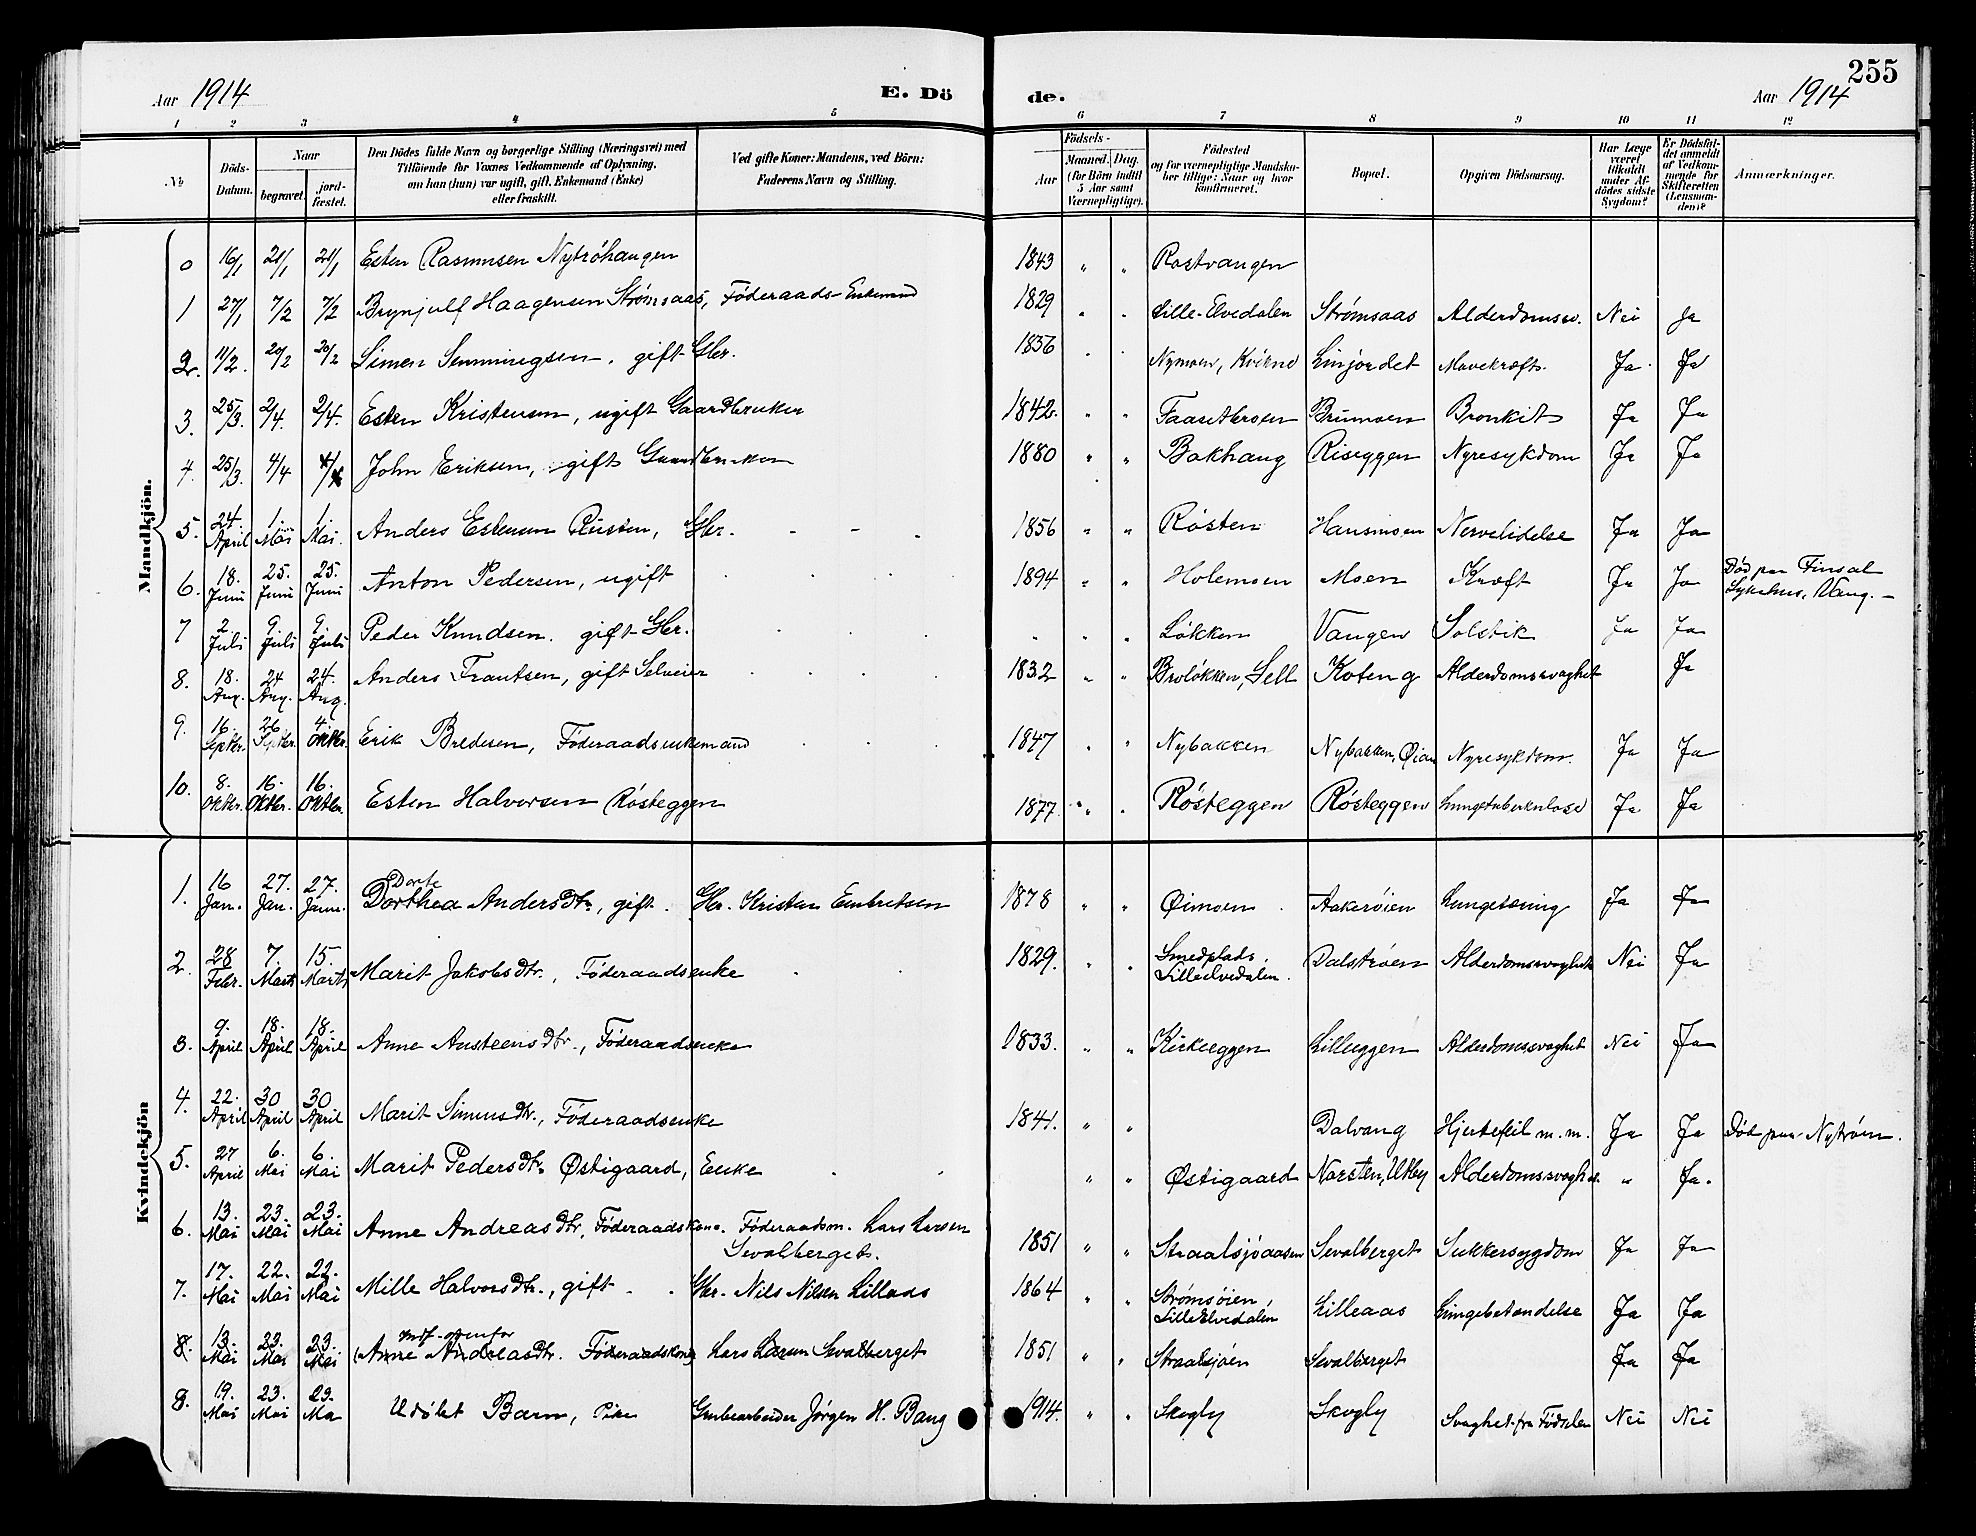 255
Aar 1914 E. Dö de. Aar 1914
1 2 3 4 5 6 7 8 9 10 11 12
№ Döds-Datum. Naar begravet. jord-fæstet. Den Dödes fulde Navn og borgerlige Stilling (Næringsvei) med Tilföiende for Voxnes Vedkommende af Oplysning, om han (hun) var ugift, gift, Enkemand (Enke) eller fraskilt. Ved gifte Koner: Mandens, ved Börn: Faderens Navn og Stilling. Födsels- Aar Maaned. Dag. (for Börn indtil 5 Aar samt Værnepligtige). Födested og for værnepligtige Mandskaber tillige: Naar og hvor konfirmeret. Bopæl. Opgiven Dödsaarsag. Har Læge været tilkaldt under Afdödes sidste Sygdom? Er Dödsfaldet anmeldt af Vedkommende for Skifteretten (Lensmanden)? Anmærkninger.
Mandkjön.
0 16/1 21/1 21/1 Esten Rasmusen Nytröhaugen 1843 " " Rostvangen
1 27/1 7/2 7/2 Brynjulf Haagensen Strømsaas, Føderaads-Enkemand 1829 " " Lille-Elvedalen Strømsaas Alderdomssv. Nei Ja
2. 11/2. 20/2 20/2 Simen Semmingsen, gift Gbr. 1836 " " Nymoen, Kvikne Linjordet Mavekræft. Ja Ja
3. 25/3. 2/4. 2/4. Esten Kristensen, ugift Gaardbruker 1842. " " Faasetbroen Brumoen Bronkit Ja Ja
4. 25/3. 4/4 4/4 John Eriksen, gift Gaardbruker 1880 " " Bakhaug Riseggen Nyresykdom Ja Ja
5. 24. April 1. Mai 1. Mai. Anders Estensen Rusten, Gbr. 1856 " " Røsten Hansmoen Nervelidelse Ja Ja
6. 18. Juni 25. Juni 25. Juni Anton Pedersen, ugift 1894 " " Holemoen Moen Kræft Ja Ja Død paa Finsal Sykehus, Vang.
7 2 Juli 9. Juli 9. Juli Peder Knudsen. gift Gbr. " " " Løkken Vangen Solstik Ja Ja
8. 18. Aug. 24 Aug. 24. Aug. Anders Frantsen, gift Selveier 1832 " " Broløkken, Sell Koteng Alderdomssvaghet Ja
9. 16. Septbr. 26 Septbr. 4. Oktbr. Erik Bredesen, Føderaadsenkemand 1847 " " Nybakken Nybakken, Øian Nyresykdom. Ja Ja
10. 8. Oktbr. 16. Oktbr. 16. Oktbr. Esten Halvorsen Røsteggen 1877 " " Røsteggen Røsteggen Lungetuberkulose Ja Ja
Kvindekjön
Dorte
1. 16 Jan. 27. Jan. 27. Janu. Dorthea Andersdtr., gift. Gbr. Kristen Embretsen 1878 " " Øimoen Aakerøien Lungetæring Ja Ja
2. 28 Febr. 7. Marts 15. Marts Marit Jakobsdtr., Føderaadsenke 1829. " " Smedplads, Lilleelvedalen. Dalstrøen Alderdomssvaghet Nei Ja
3. 9. April 18. April 18. April Anne Austeensdtr., Føderaadsenke 1833. " " Kirkeeggen Lilleeggen Alderdomssvaghet Nei Ja
4. 22. April 30 April 30 April Marit Simensdtr., Føderaadsenke 1841. " " Dalvang Hjertefeil m.m. Ja Ja Død paa Nytrøen.
5. 27 April 6. Mai 6. Mai Marit Pedersdtr. Østigaard, Enke " " Østigaard Narsten, Utby Alderdomssvaghet. " Ja.
6. 13. Mai 23. Mai 23. Mai Anne Andreasdtr, Føderaadskone. Føderaadsm. Lars Larsen Sevalberget. 1851 " " Straalsjøaasen Sevalberget Sukkersygdom Ja Ja
7. 17. Mai 22. Mai 22. Mai Mille Halvorsdtr., gift Gbr. Nils Nilsen Lilleaas 1864 " " Strømsøien, Lilleelvedalen Lilleaas Lungebetændelse Ja Ja
indf. ovenfor
8. 13. Mai 23. Mai 23. Mai (Anne Andreasdtr. Føderaadskone Lars Larsen Sevalberget 1851 " " Straalsjøen Sevalberget Ja Ja
8. 19. Mai 23. Mai 23. Ma Udøbt Barn, Pike Grubearbeider Jørgen H. Bang 1914. " " Skogly Skogly Svaghet fra Fødselen Nei Nei